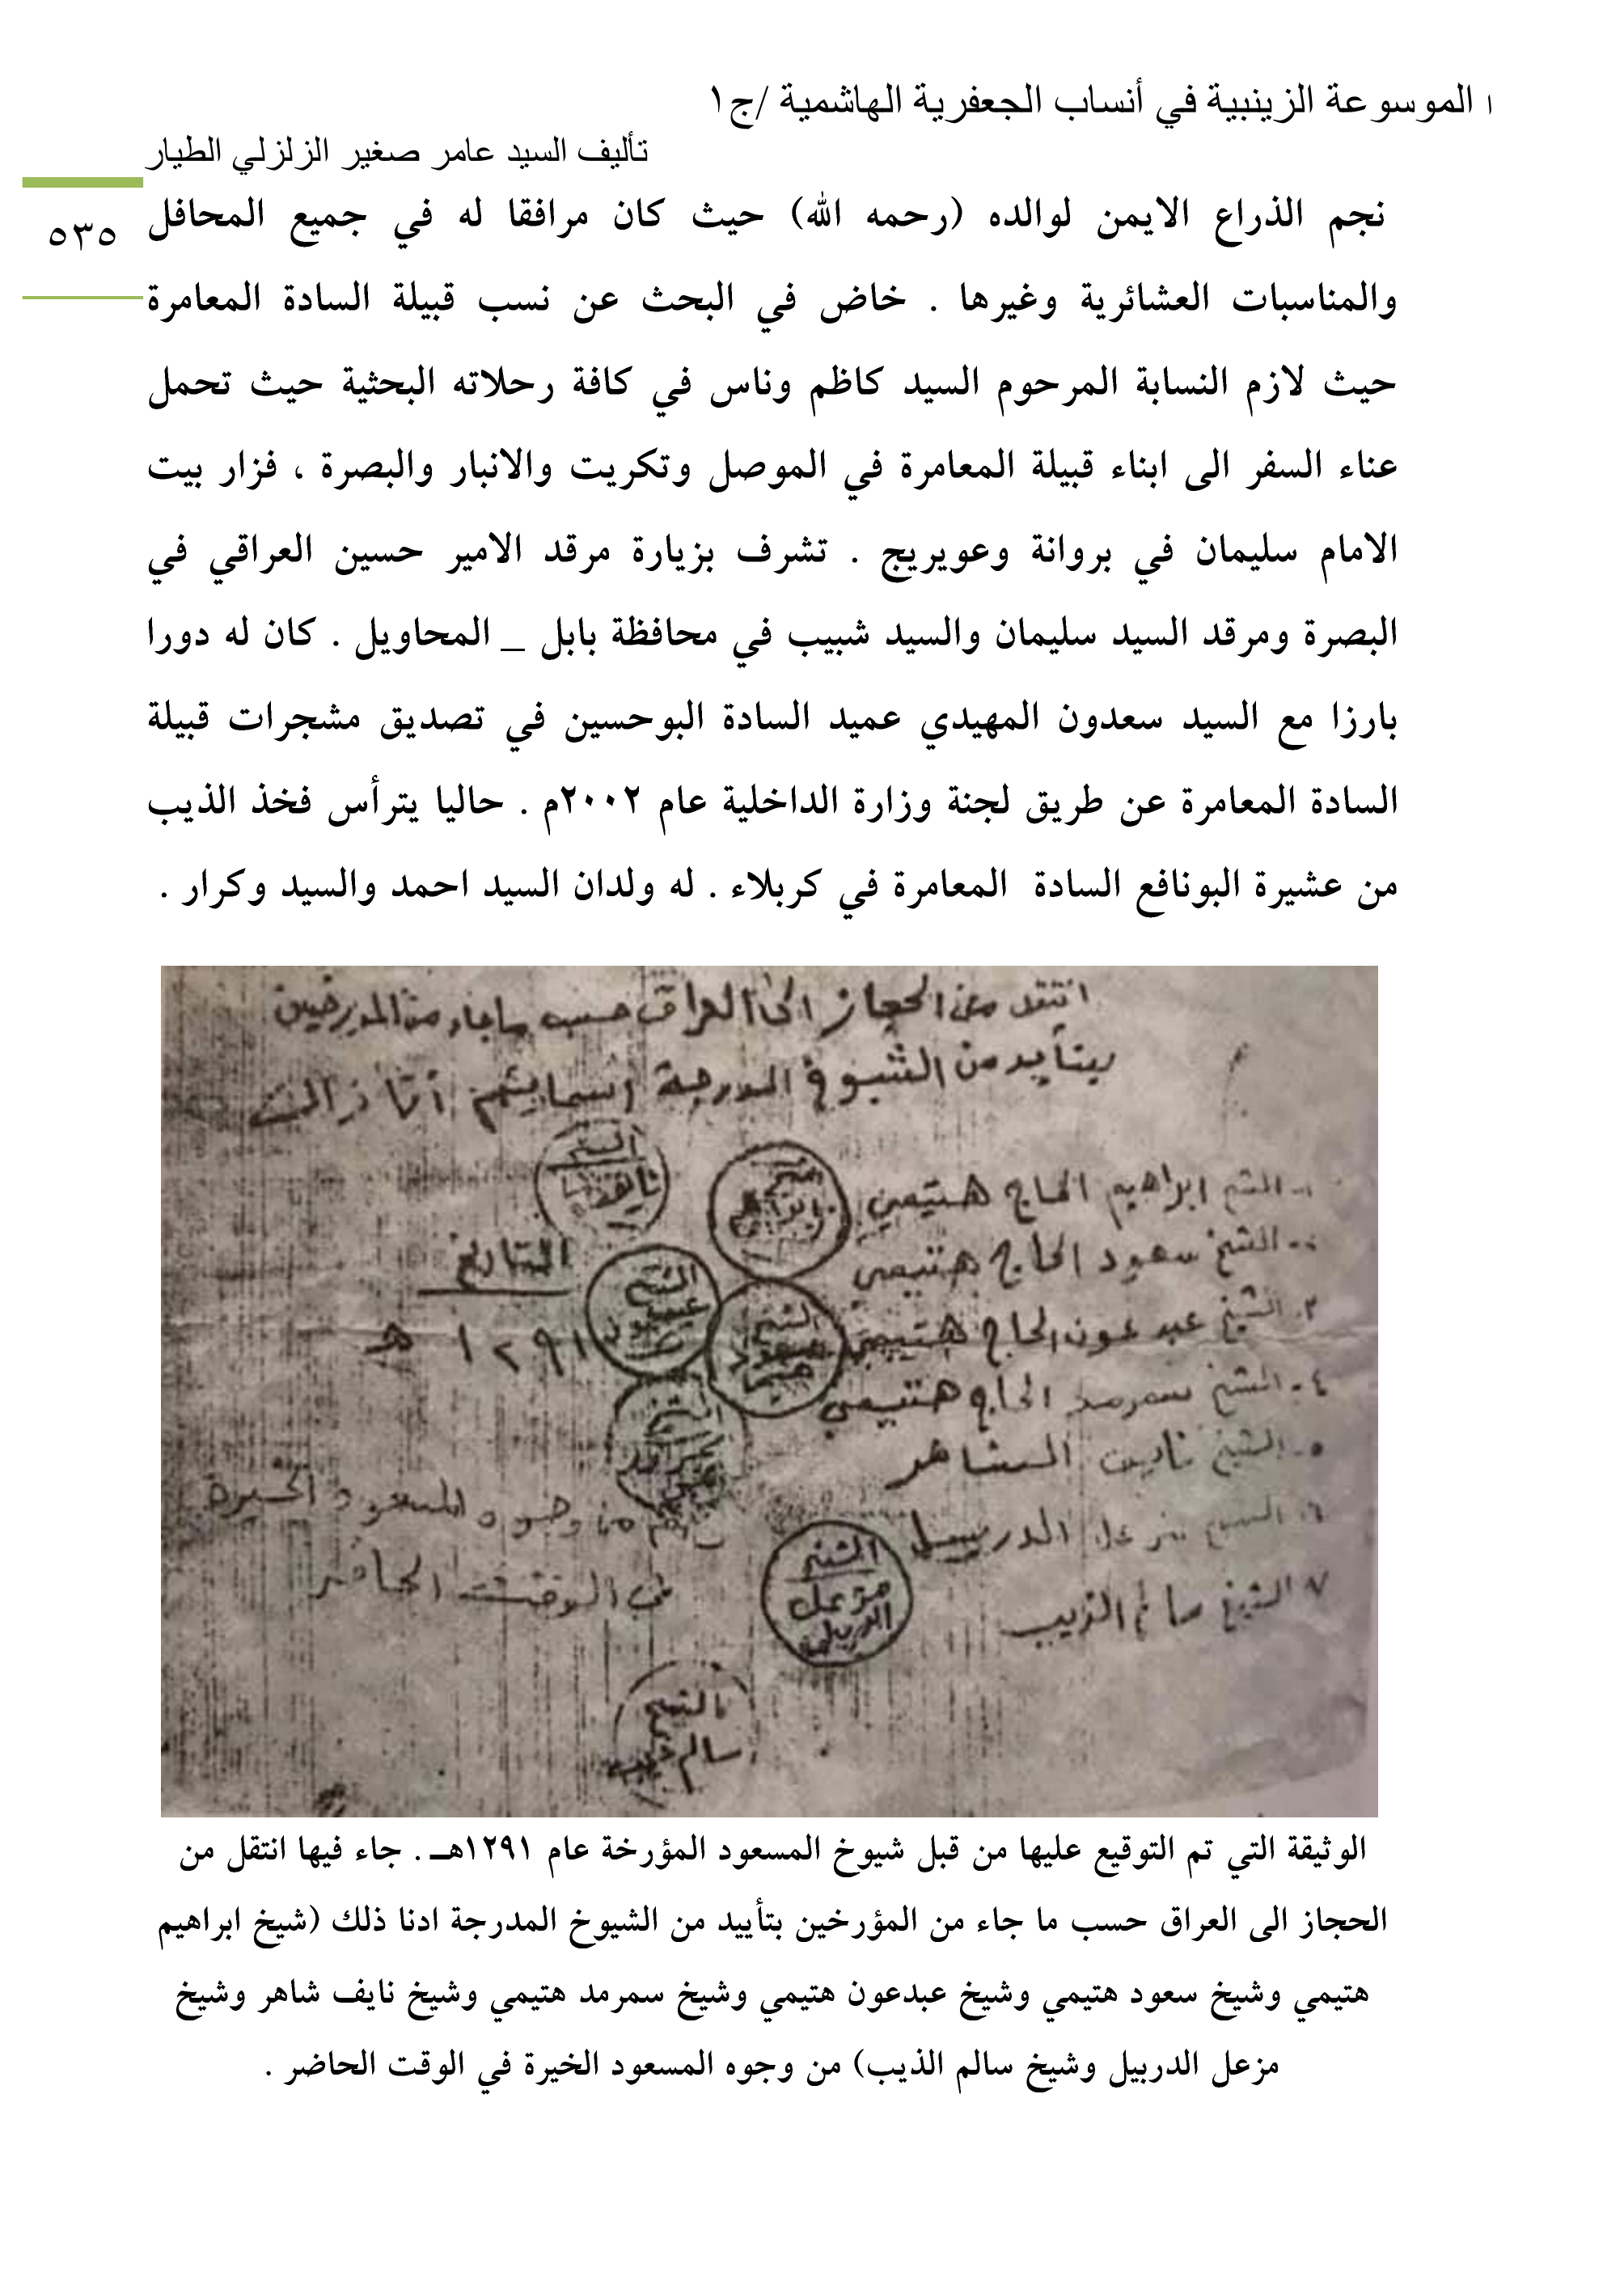 ا الموسوعة الزينبية في أنساب الجعفرية الهاشمية /ج١
تأليف السيد عامر صغير الزلزلي الطيار
٥٣٥
نجم الذراع الايمن لوالده (رحمه الله) حيث كان مرافقا له في جميع المحافل
والمناسبات العشائرية وغيرها . خاض في البحث عن نسب قبيلة السادة المعامرة
حيث لازم النسابة المرحوم السيد كاظم وناس في كافة رحلاته البحثية حيث تحمل
عناء السفر الى ابناء قبيلة المعامرة في الموصل وتكريت والانبار والبصرة ، فزار بيت
الامام سليمان في بروانة وعويريج . تشرف بزيارة مرقد الامير حسين العراقي في
البصرة ومرقد السيد سليمان والسيد شبيب في محافظة بابل _ المحاويل . كان له دورا
بارزا مع السيد سعدون المهيدي عميد السادة البوحسين في تصديق مشجرات قبيلة
السادة المعامرة عن طريق لجنة وزارة الداخلية عام ٢٠٠٢م . حاليا يترأس فخذ الذيب
من عشيرة البونافع السادة المعامرة في كربلاء . له ولدان السيد احمد والسيد وكرار .
انتقل من الحجاز الى العراق حسب ما جاء من المورخين
بتأييد من الشيوخ المدرجة
١- الشيخ ابراهيم الحاج هتيمي
٢- الشيخ سعود الحاج هتيمي
٣- الشيخ عبد عون الحاج هتيمي
٤- الشيخ سمرمد الحاج هتيمي
٥- الشيخ نايف الشاهر
٦- الشيخ مزعل الدربيل
٧ الشيخ سالم الذيب
التاريخ
١٢٩١ هـ
من وجوه المسعود الخيرة
في الوقت الحاضر
الشيخ
مزعل
الدربيل
الوثيقة التي تم التوقيع عليها من قبل شيوخ المسعود المؤرخة عام ١٢٩١هـ . جاء فيها انتقل من
الحجاز الى العراق حسب ما جاء من المؤرخين بتأييد من الشيوخ المدرجة ادنا ذلك (شيخ ابراهيم
هتيمي وشيخ سعود هتيمي وشيخ عبدعون هتيمي وشيخ سمرمد هتيمي وشيخ نايف شاهر وشيخ
مزعل الدربيل وشيخ سالم الذيب) من وجوه المسعود الخيرة في الوقت الحاضر .